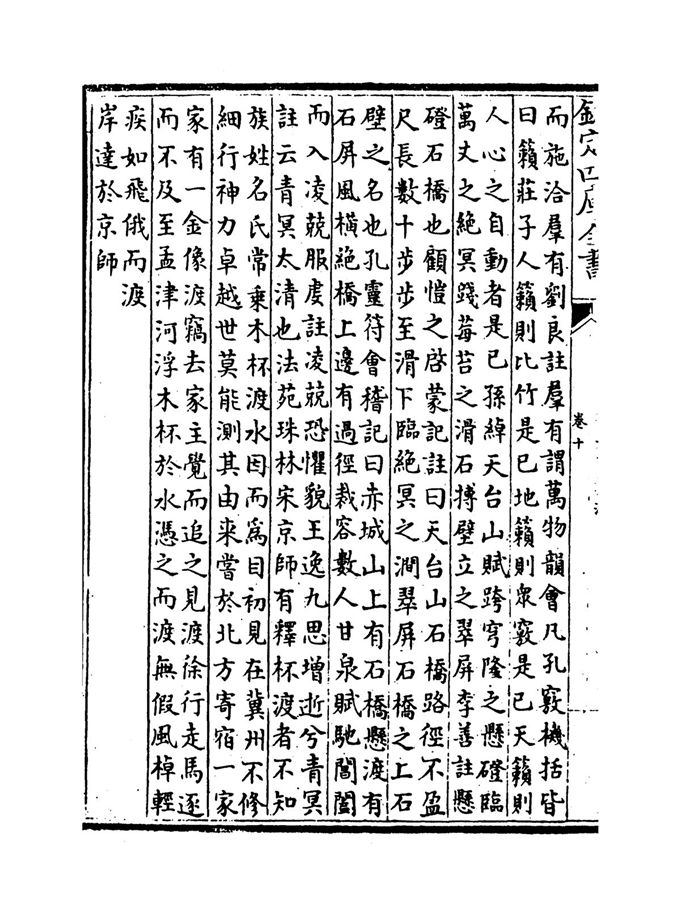 欽定四庫全書
卷十
而施洽羣有劉良註羣有謂萬物韻會凡孔竅機括皆
曰籟莊子人籟則比竹是已地籟則衆竅是已天籟則
人心之自動者是已孫綽天台山賦跨穹隆之懸磴臨
萬丈之絶冥踐莓苔之滑石搏壁立之翠屏李善註懸
磴石橋也顧愷之啓蒙記註曰天台山石橋路徑不盈
尺長數十步步至滑下臨絶冥之澗翠屏石橋之上石
壁之名也孔靈符會稽記曰赤城山上有石橋懸渡有
石屏風橫絶橋上邊有過徑裁容數人甘泉賦馳閶闔
而入凌兢服虔註凌兢恐懼貌王逸九思增逝兮青冥
註云青冥太清也法苑珠林宋京師有釋杯渡者不知
族姓名氏常乗木杯渡水因而爲目初見在冀州不修
細行神力卓越世莫能測其由来嘗於北方寄宿一家
家有一金像渡竊去家主覺而追之見渡徐行走馬逐
而不及至孟津河浮木杯於水憑之而渡無假風棹輕
疾如飛俄而渡
岸達於京師